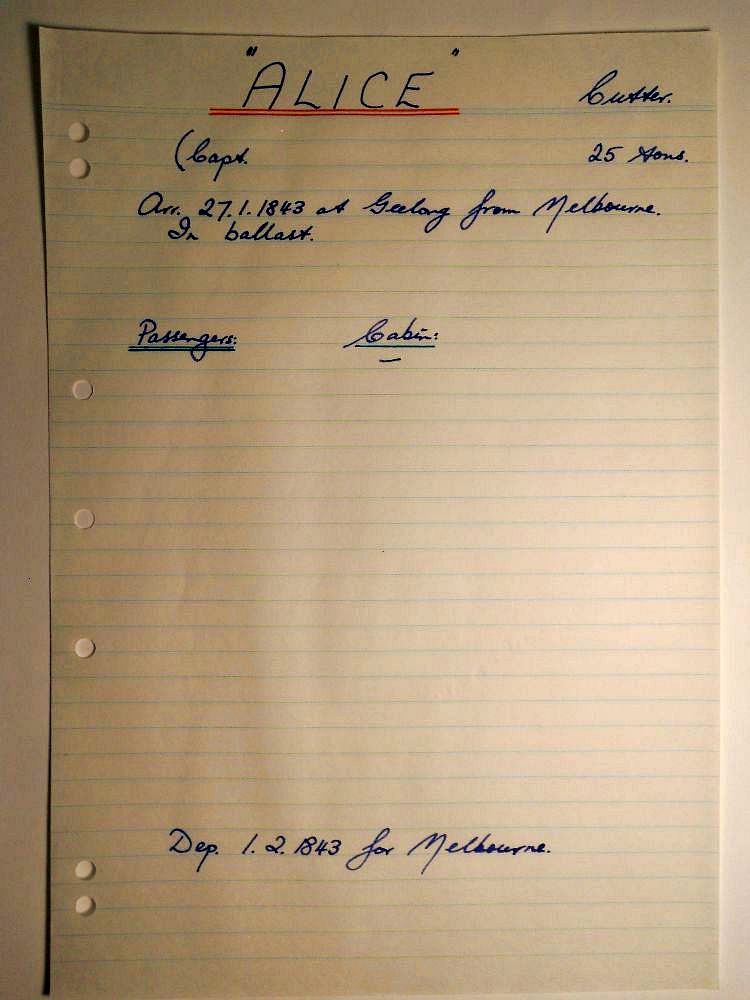 "ALICE" Cutter.
(Capt. 25 tons.
Arr. 27.1.1843 at Geelong from Melbourne.
In ballast.
Passengers: Cabin:
—
Dep. 1.2.1843 for Melbourne.